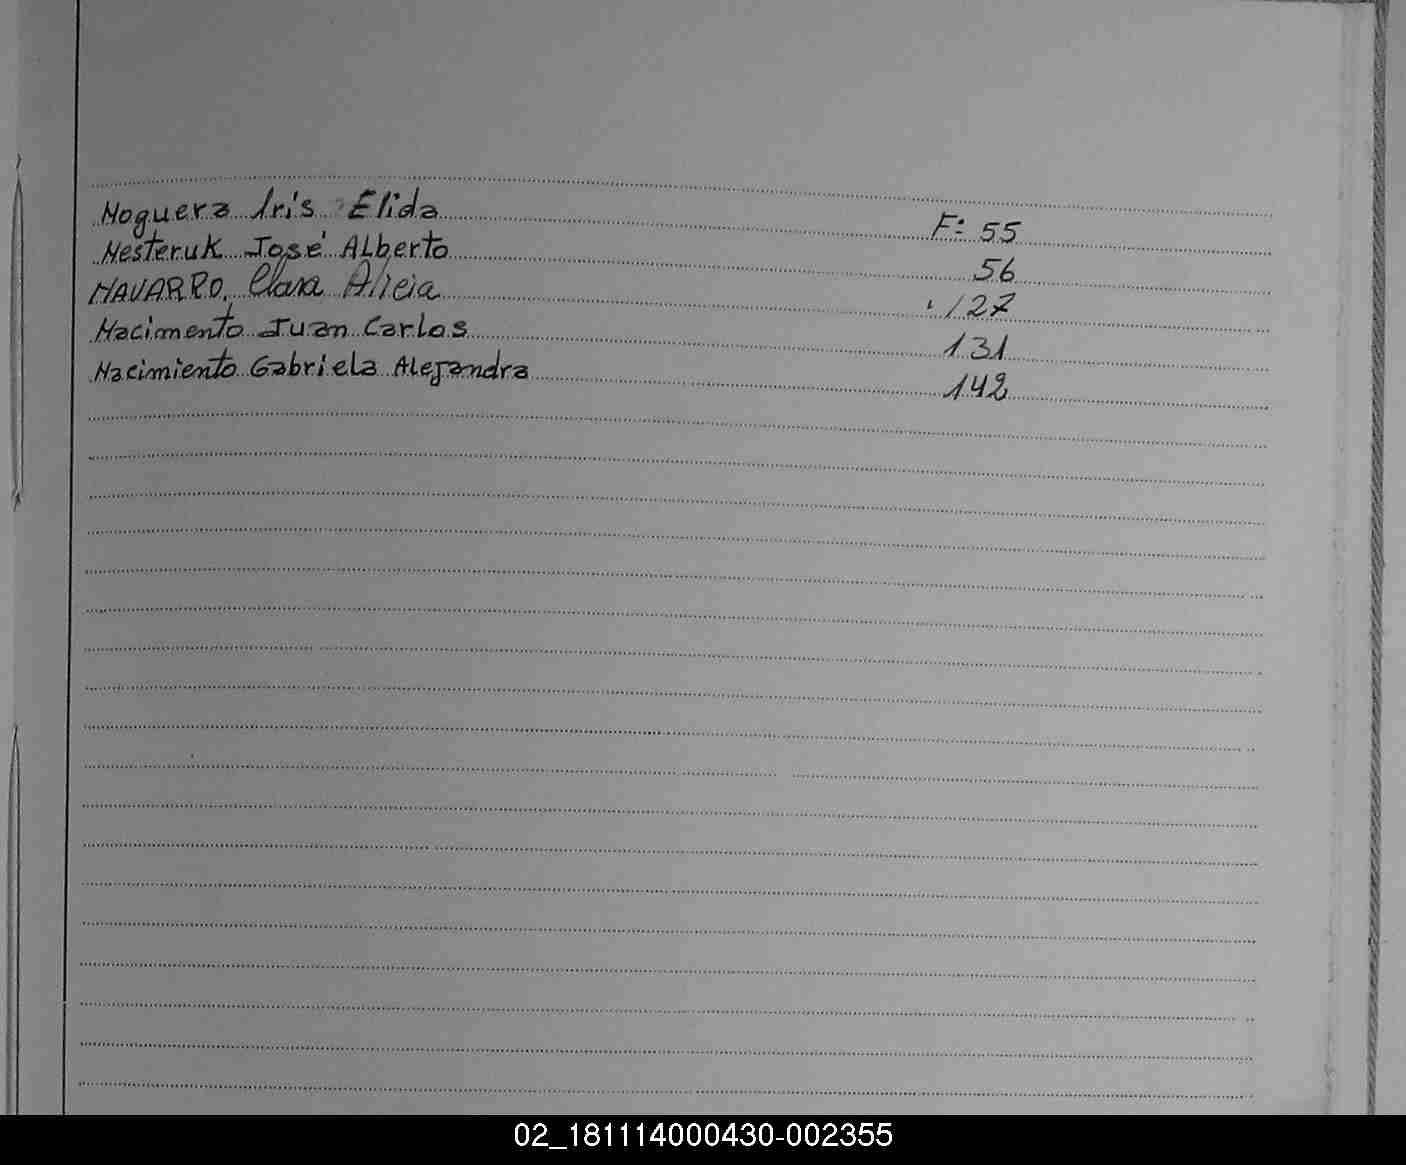 Noguera Iris Elida F: 55
Nesteruk José Alberto 56
NAVARRO, Clara Alicia 127
Nacimento Juan Carlos 131
Nacimiento Gabriela Alejandra 142
02_181114000430-002355